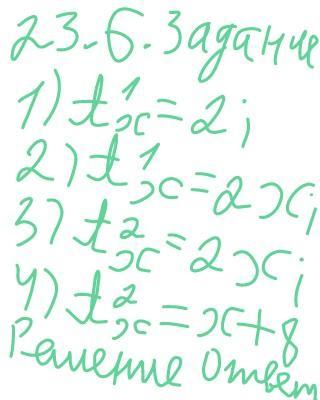 23.6. Задание
1) t¹ₓ = 2;
2) t¹ₓ = 2x;
3) t²ₓ = 2x;
4) t²ₓ = x+8
Решение Ответ